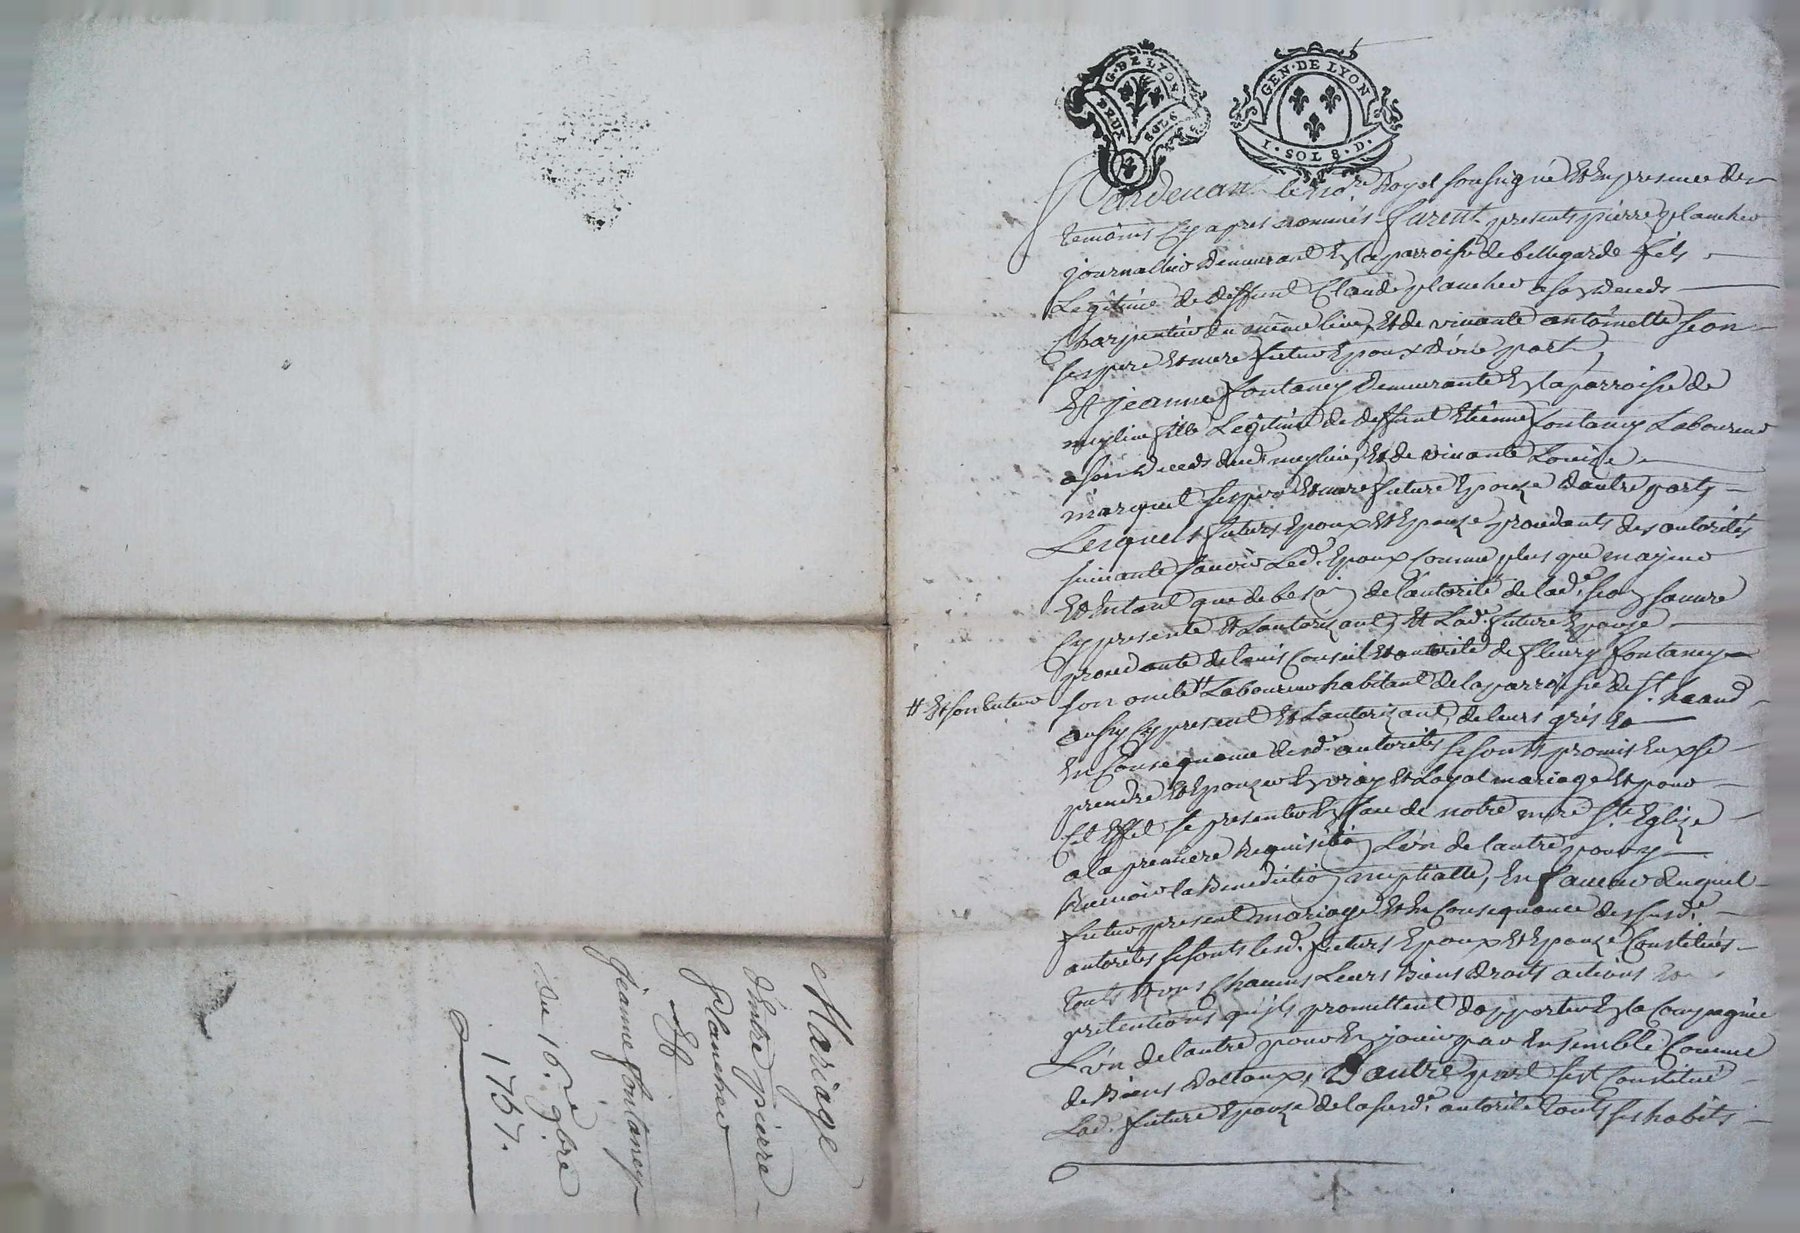 G. DE LYON
DEUX SOLS
GEN. DE LYON
I. SOL 8. D.
Pardevant le no.re Royal soussigné Et En presence des
temoins Cy apres nommés furent presents pierre plancher
journallier demeurant En la parroisse de bellegarde fils
Legitime de deffunt Claude plancher a son deceds
Charpentier du même lieu, Et de vivante antoinette seon
ses pere Et mere futur Epoux d'une part,
Et jeanne fontaney demeurante En la parroisse de
meylieu fille Legitime de deffunt Etienne fontaney Laboureur
a son deceds dud. meylieu, Et de vivante Louise
marquet ses pere Et mere future Epouze d'autre part,
Lesquels futurs Epoux Et Epouze procedants des autorités
suivante savoir Led. Epoux Comme plus que majeur
Et En tant que de besoin de l'autorité de lad.e seon sa mere
Cy presente Et L'autorizant, Et Lad. future Epouze
procedante de l'avis Conseil Et autorité de fleury fontaney
son oncle # Laboureur habitant de la parroisse de St. haand
# Et son tuteur
aussy Cy present Et L'autorizant, de leurs grés Et
En Consequance desd. autorités se sont promis Eux se
prendre Et Epouzer En vray Et Loyal mariage Et pour
Cet Effet se presenter En face de notre mere Ste. Eglize
a la premiere Requisition L'un de l'autre pour y
Recevoir la Benediction nuptialle, En faveur duquel
futur present mariage Et En Consequance des susd.
autorités se sont lesd. futurs Epoux Et Epouze Constitués
touts Et uns Chacuns Leurs Biens droits actions Et
pretentions qu'ils promettent d'apporter En la Compagnie
L'un de l'autre pour En jouir par Ensemble Comme
de Biens dottaux, D'autre part s'est Constitué
Lad. future Epouze de la susd.e autorité touts ses habits
Mariage
d'Entre pierre
Plancher
Et
Jeanne fontaney
du 16.e 9bre
1767.